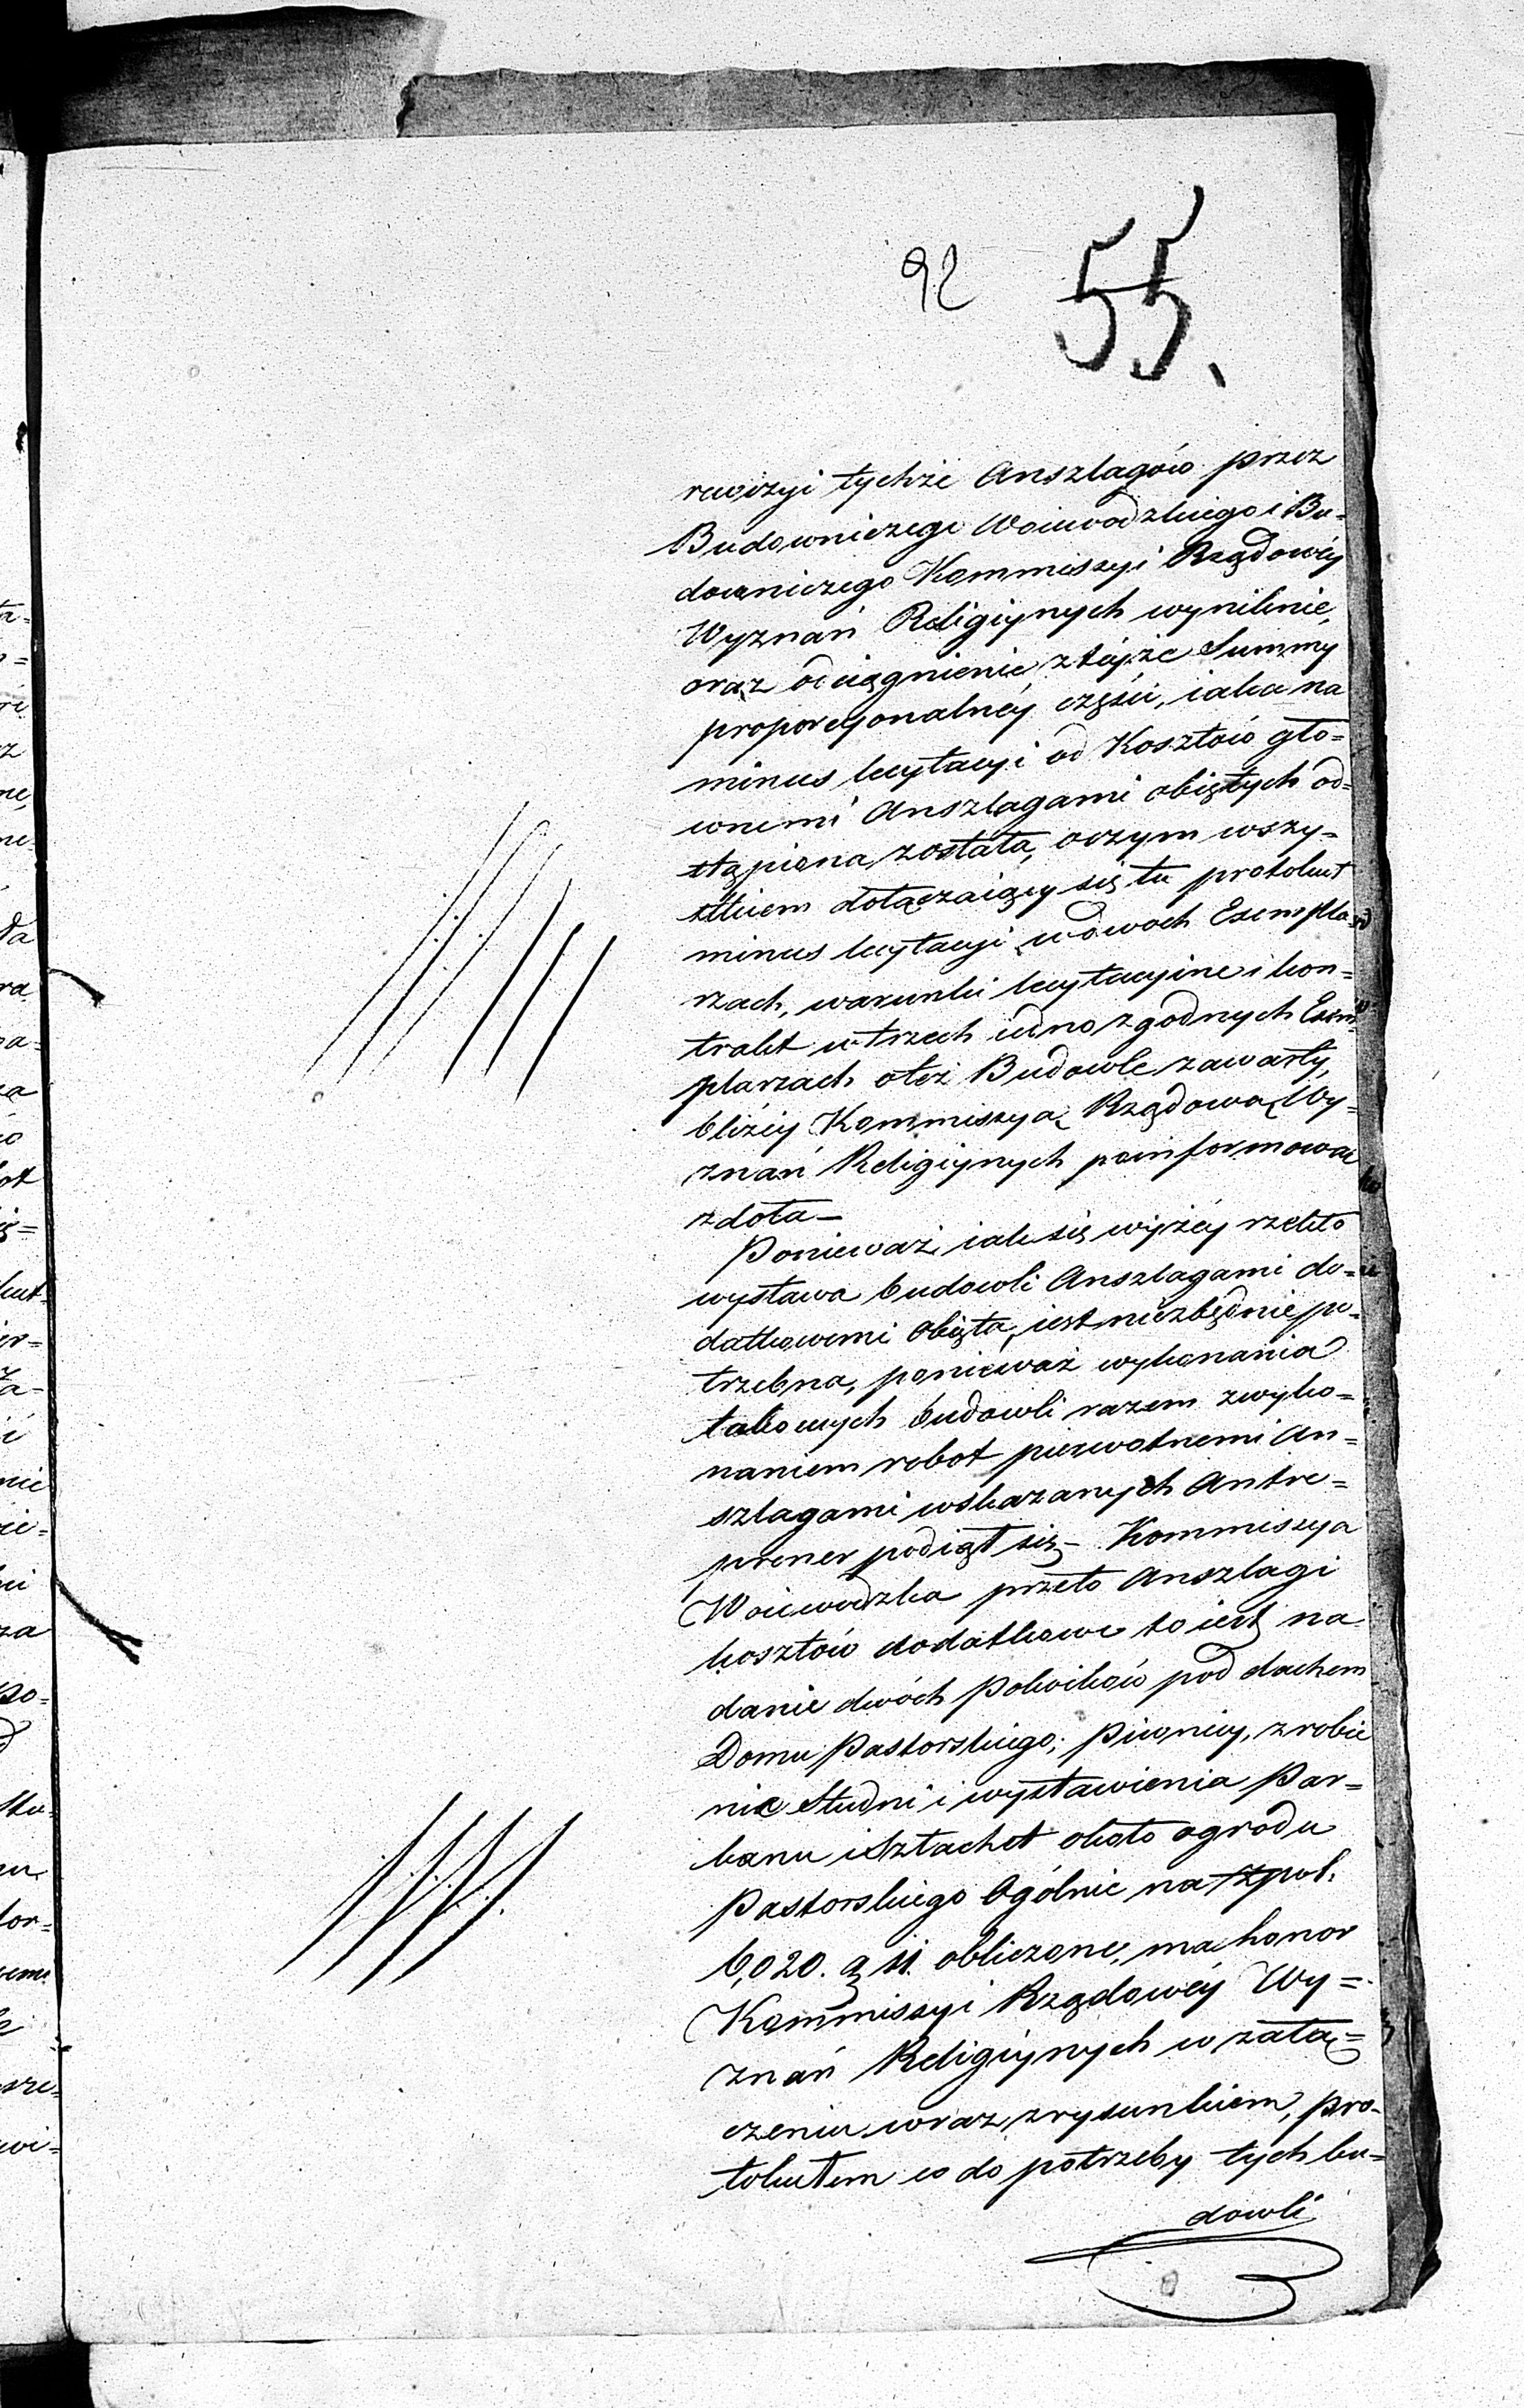 92 55.
rewizyi tychże Anszlagów przez
Budowniczego Woiewodzkiego i Bu-
downiczego Kommissyi Rządowéy
Wyznań Religiynych wyniknie,
oraz odciągnienie z téyże Summy
proporcyonalnéy części, iaka na
minus licytacyi od Kosztów głó-
wnemi Anszlagami obiętych od-
stąpiona została, oczym wszy-
stkiem dołączaiący się tu protokuł
minus licytacyi w dwoch Exempla
rzach, warunki licytacyine i kon-
trakt w trzech iedno zgodnych Exem-
plarzach o też Budowle zawarty,
bliżéy Kommissyą Rządową Wy-
znań Religiynych poinformować
zdoła_
Ponieważ iak się wyżéy rzekło
wystawa budowli Anszlagami do-
datkowemi obięta, iest niezbędnie po-
trzebna, ponieważ wykonania
takowych budowli razem z wyko-
naniem robot pierwotnemi An-
szlagami wskazanych Antre-
prener podiął się - Kommissya
Woiewodzka przeto Anszlagi
kosztów dodatkowe to iest na
danie dwóch Pokoików pod dachem
Domu Pastorskiego, Piwnicy, zrobie
nie Studni i wystawienia Par-
kanu i Sztachet około ogrodu
Pastorskiego Ogólnie na złpol.
6,020. g 11. obliczone, ma honor
Kommissyi Rządowéy Wy=
znań Religiynych w załą=
czeniu wraz z rysunkiem, pro-
tokułem co do potrzeby tych bu-
dowli